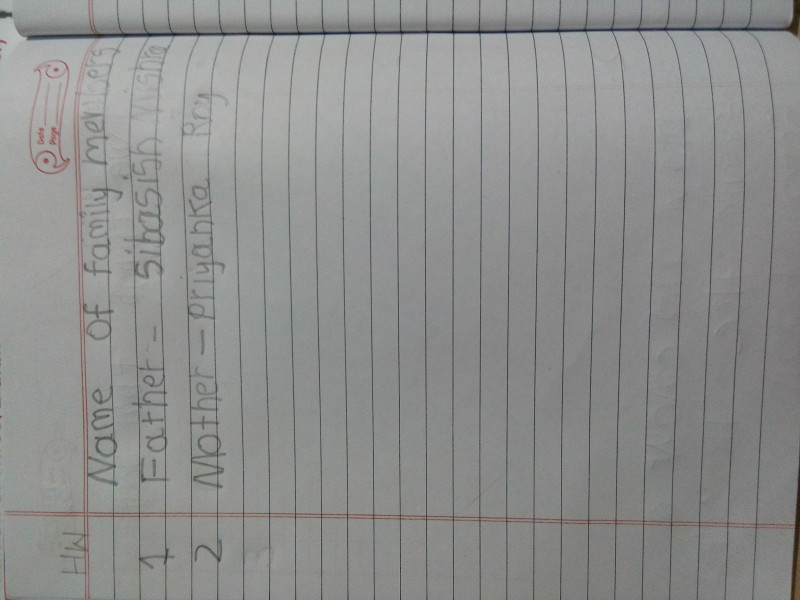 HW
Date
Page
Name of family members
1 Father - Sibasish Mishra
2 Mother - Priyanka Roy